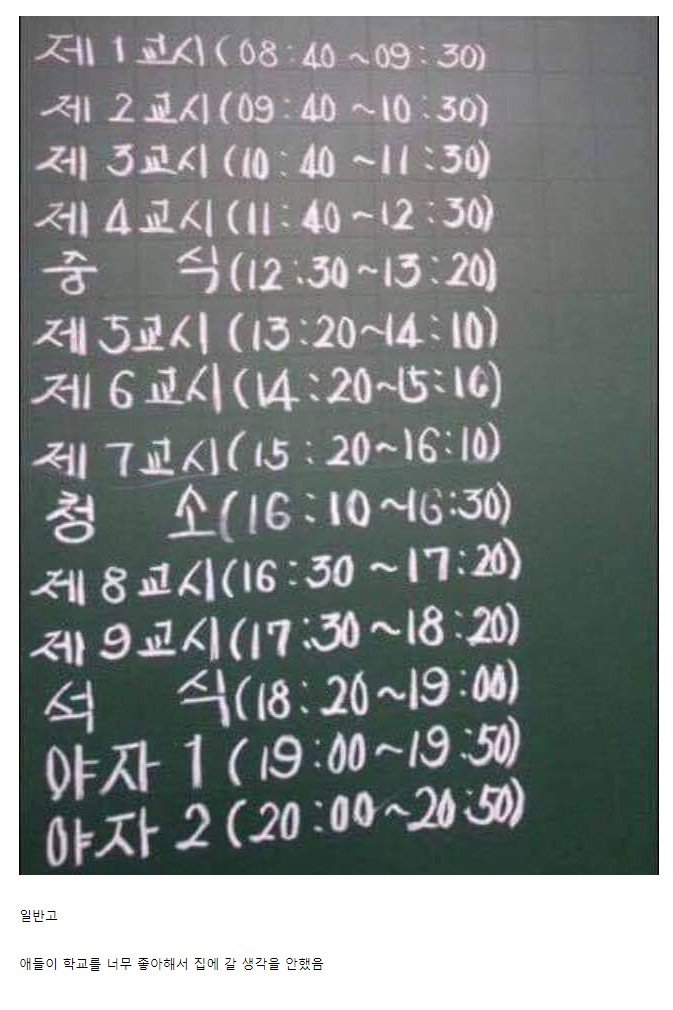 제 1 교시 (08:40~09:30)
제 2 교시 (09:40~10:30)
제 3 교시 (10:40~11:30)
제 4 교시 (11:40~12:30)
중 식 (12:30~13:20)
제 5 교시 (13:20~14:10)
제 6 교시 (14:20~15:10)
제 7 교시 (15:20~16:10)
청 소 (16:10~16:30)
제 8 교시 (16:30~17:20)
제 9 교시 (17:30~18:20)
석 식 (18:20~19:00)
야자 1 (19:00~19:50)
야자 2 (20:00~20:50)
일반고
애들이 학교를 너무 좋아해서 집에 갈 생각을 안했음